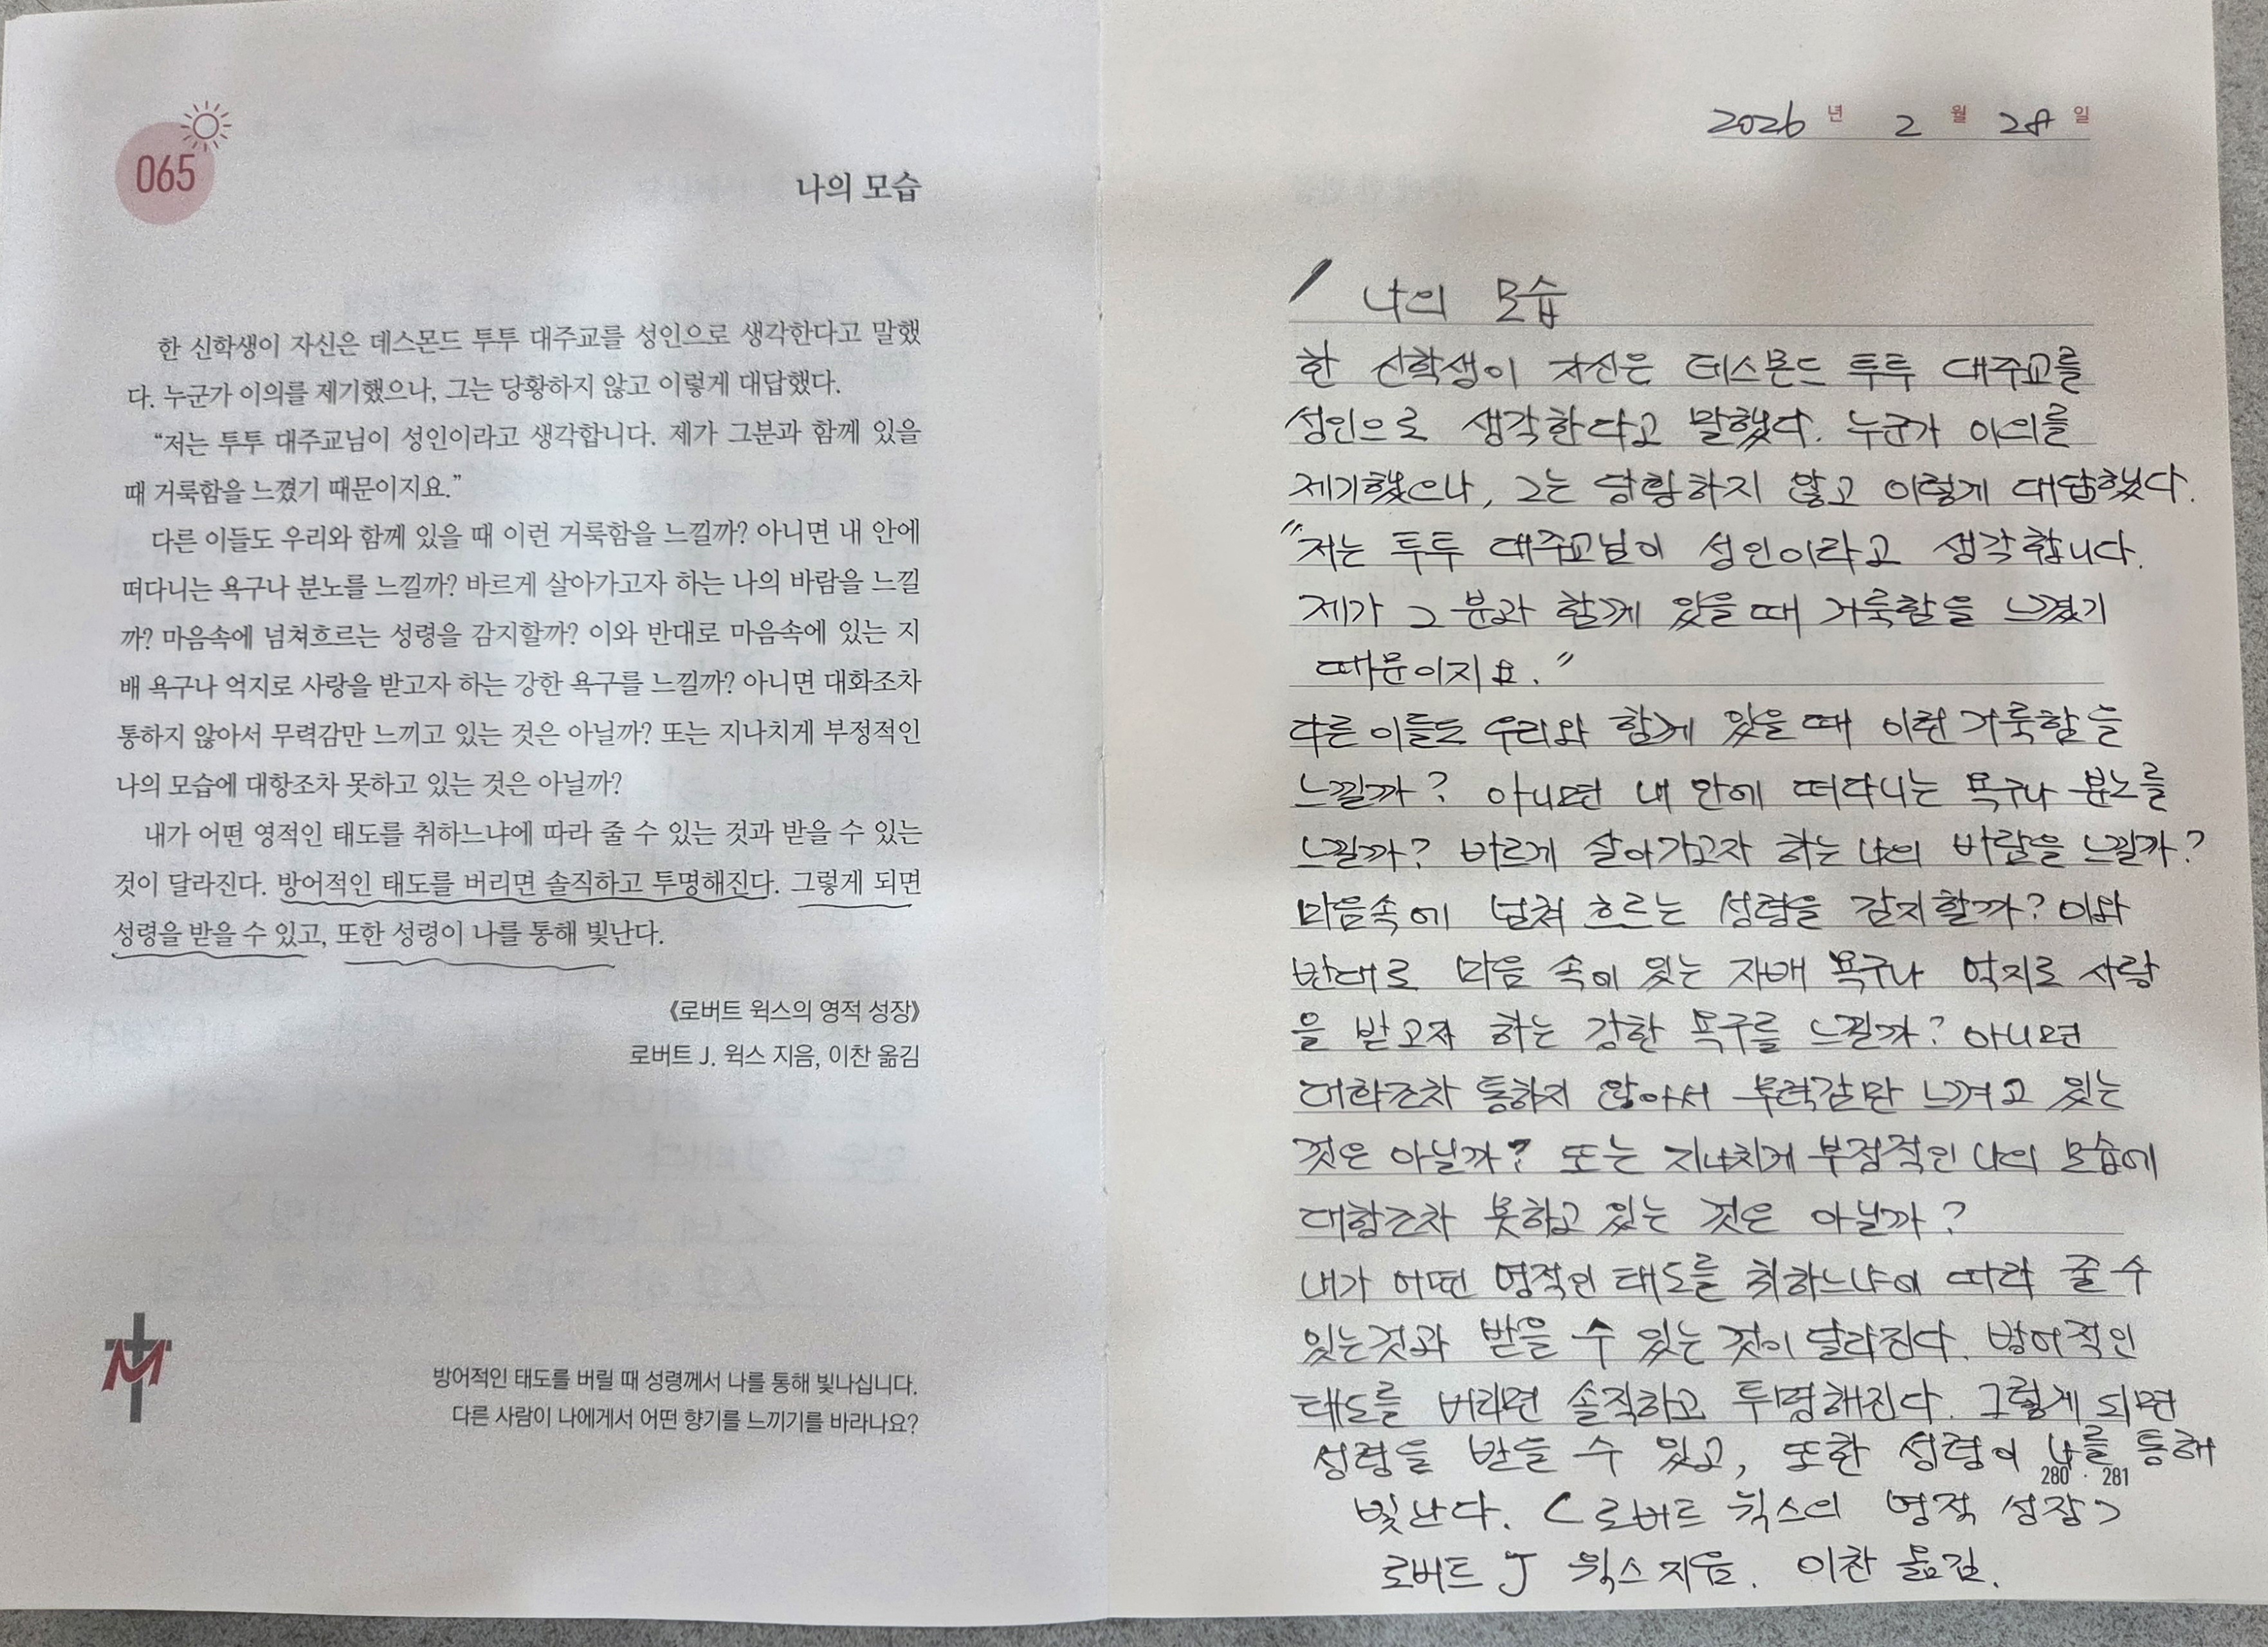 065
나의 모습
한 신학생이 자신은 데스몬드 투투 대주교를 성인으로 생각한다고 말했
다. 누군가 이의를 제기했으나, 그는 당황하지 않고 이렇게 대답했다.
“저는 투투 대주교님이 성인이라고 생각합니다. 제가 그분과 함께 있을
때 거룩함을 느꼈기 때문이지요.”
다른 이들도 우리와 함께 있을 때 이런 거룩함을 느낄까? 아니면 내 안에
떠다니는 욕구나 분노를 느낄까? 바르게 살아가고자 하는 나의 바람을 느낄
까? 마음속에 넘쳐흐르는 성령을 감지할까? 이와 반대로 마음속에 있는 지
배 욕구나 억지로 사랑을 받고자 하는 강한 욕구를 느낄까? 아니면 대화조차
통하지 않아서 무력감만 느끼고 있는 것은 아닐까? 또는 지나치게 부정적인
나의 모습에 대항조차 못하고 있는 것은 아닐까?
내가 어떤 영적인 태도를 취하느냐에 따라 줄 수 있는 것과 받을 수 있는
것이 달라진다. 방어적인 태도를 버리면 솔직하고 투명해진다. 그렇게 되면
성령을 받을 수 있고, 또한 성령이 나를 통해 빛난다.
《로버트 윅스의 영적 성장》
로버트 J. 윅스 지음, 이찬 옮김
M
방어적인 태도를 버릴 때 성령께서 나를 통해 빛나십니다.
다른 사람이 나에게서 어떤 향기를 느끼기를 바라나요?
2026 년 2 월 28 일
나의 모습
한 신학생이 자신은 데스몬드 투투 대주교를
성인으로 생각한다고 말했다. 누군가 이의를
제기했으나, 그는 당황하지 않고 이렇게 대답했다.
"저는 투투 대주교님이 성인이라고 생각합니다.
제가 그 분과 함께 있을 때 거룩함을 느꼈기
때문이지요."
다른 이들도 우리와 함께 있을 때 이런 거룩함을
느낄까? 아니면 내 안에 떠다니는 욕구나 분노를
느낄까? 바르게 살아가고자 하는 나의 바람을 느낄까?
마음속에 넘쳐 흐르는 성령을 감지할까? 이와
반대로 마음 속이 있는 지배 욕구나 억지로 사랑
을 받고자 하는 강한 욕구를 느낄까? 아니면
대화조차 통하지 않아서 무력감만 느껴고 있는
것은 아닐까? 또는 지나치게 부정적인 나의 모습에
대항조차 못하고 있는 것은 아닐까?
내가 어떤 영적인 태도를 취하느냐에 따라 줄 수
있는것과 받을 수 있는 것이 달라진다. 방어적인
태도를 버리면 솔직하고 투명해진다. 그렇게 되면
성령을 받을 수 있고, 또한 성령이 나를 통해
280 · 281
빛난다. <로버트 윅스의 영적 성장>
로버트 J 윅스 지음. 이찬 옮김.